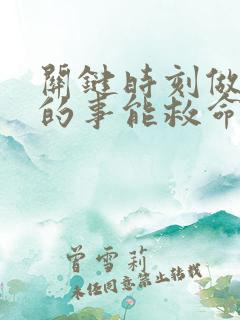 關鍵時刻做
的事能救命
曾雪莉
未經同意禁止轉載